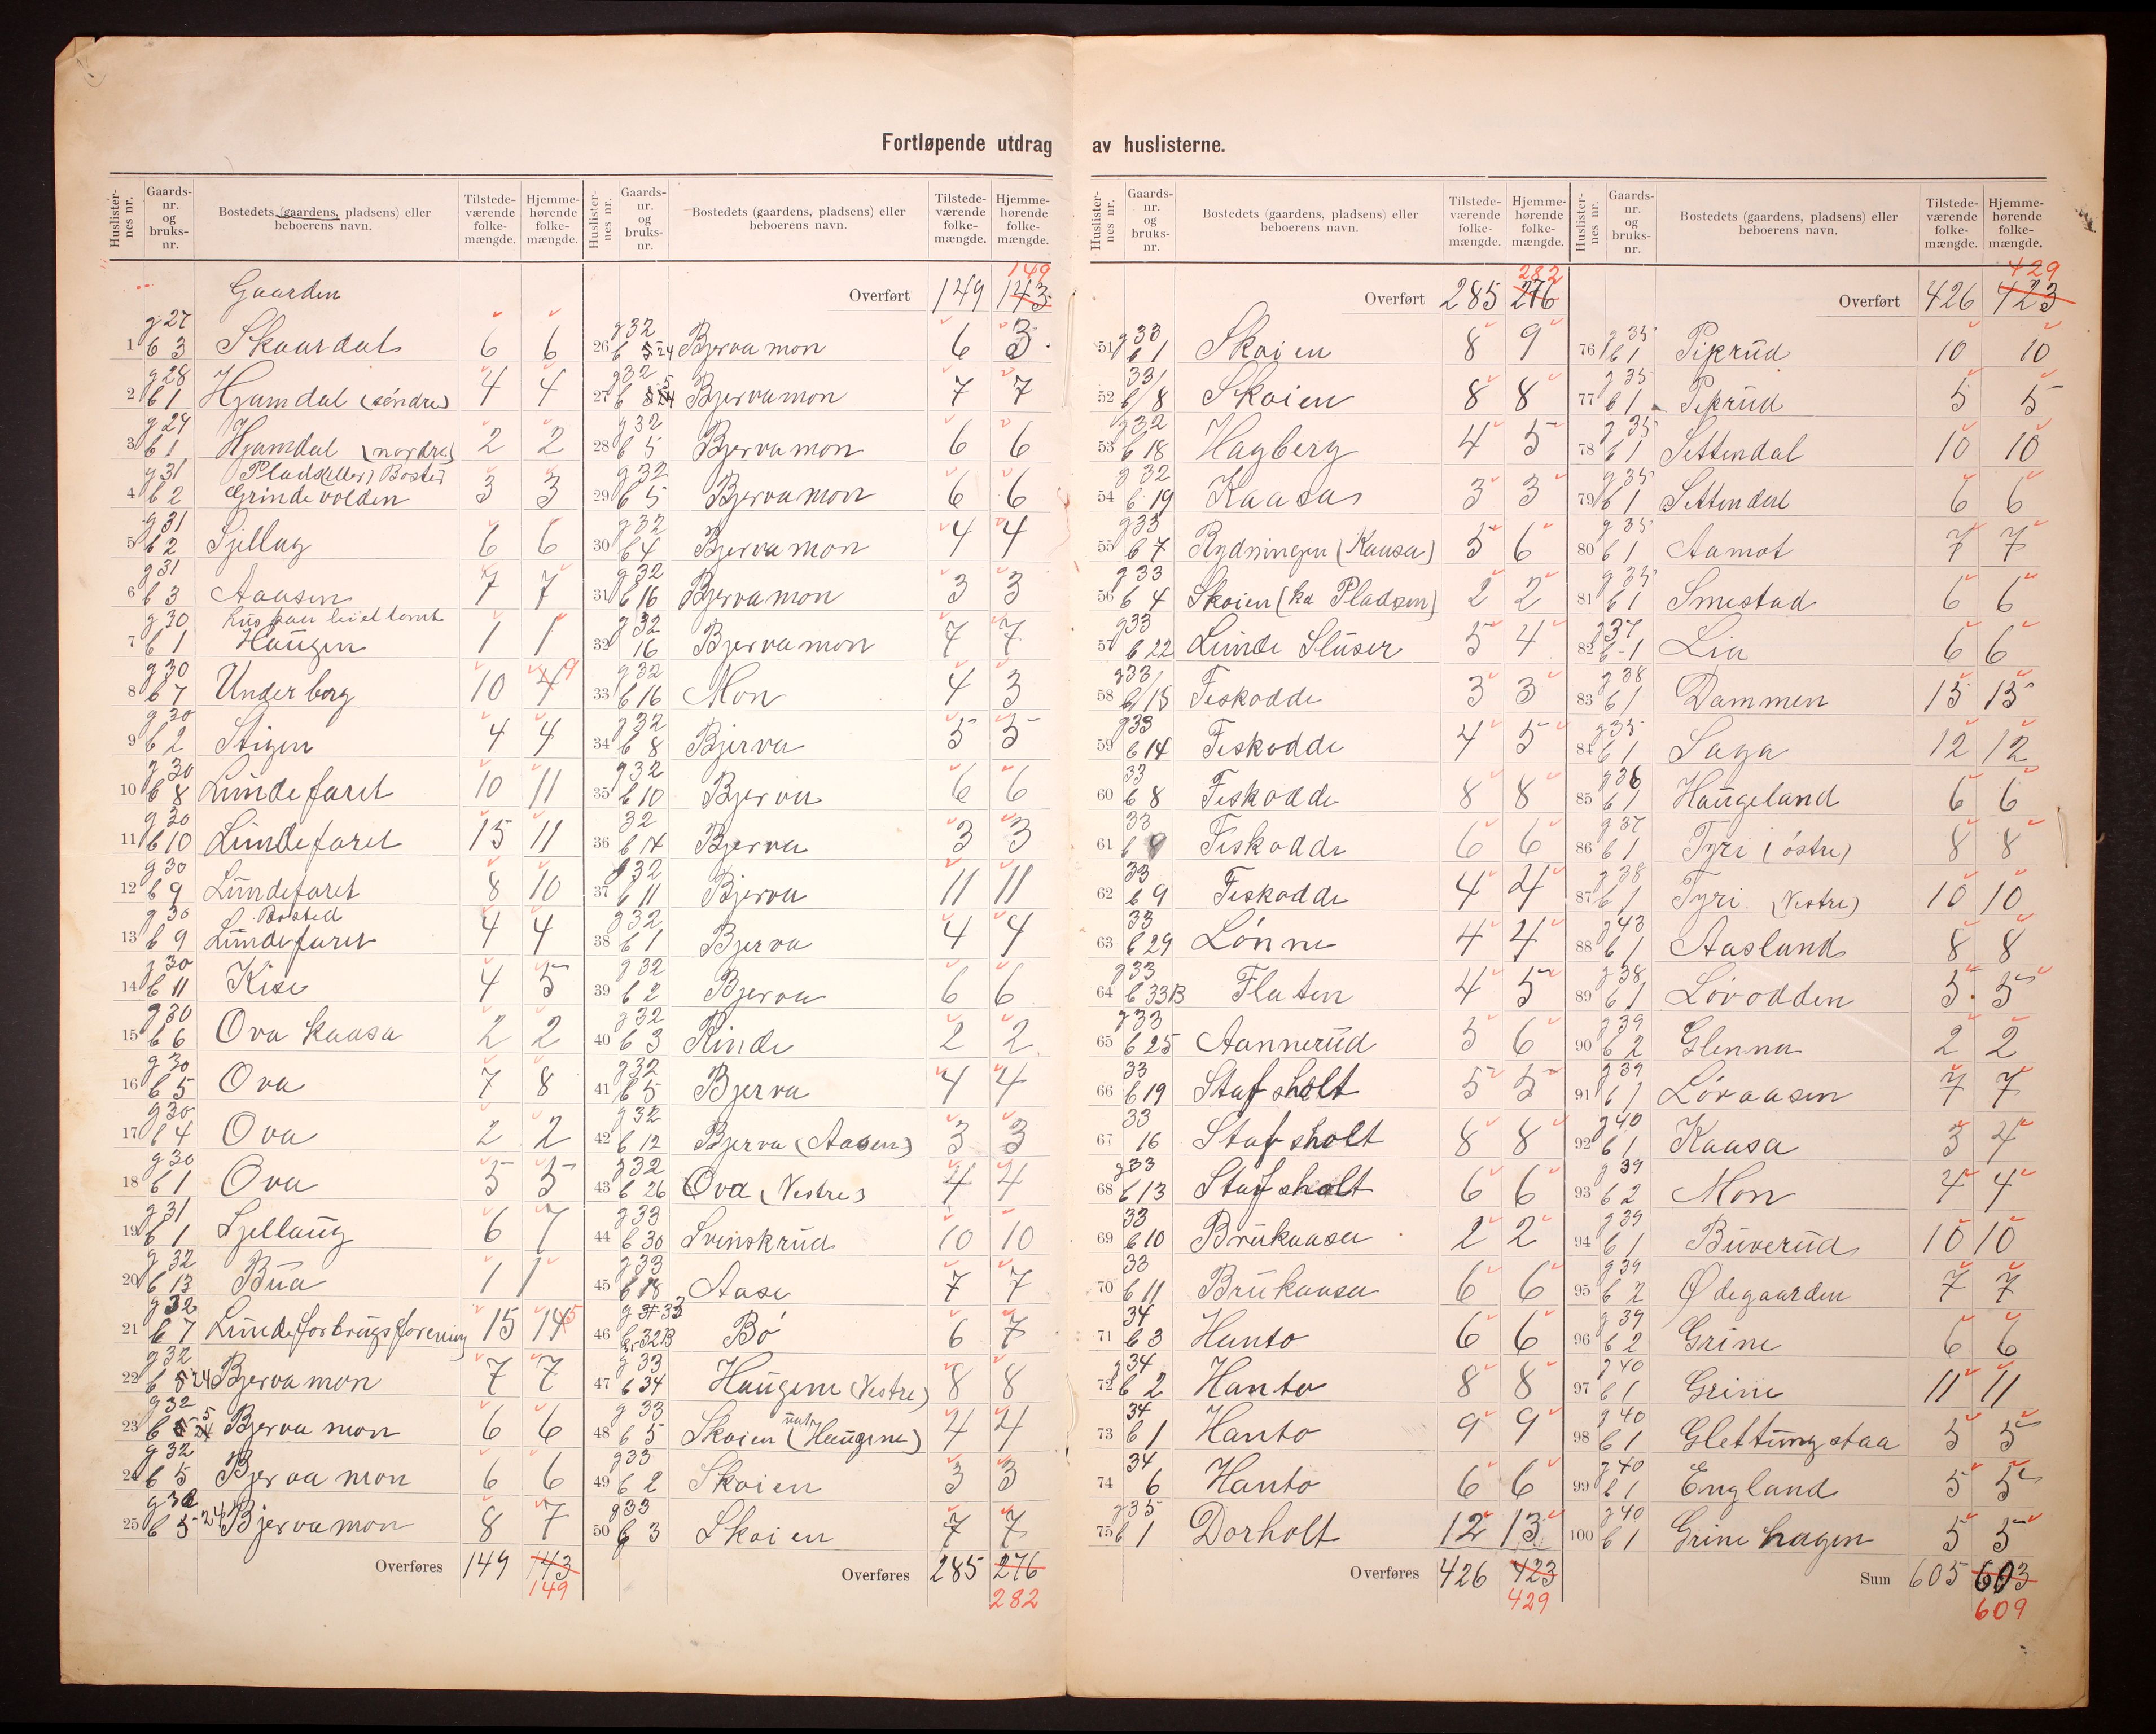 Fortløpende utdrag av huslisterne.
Huslisternes nr. | Gaardsnr. og bruksnr. | Bostedets (gaardens, pladsens) eller beboerens navn. | Tilstedeværende folkemængde. | Hjemmehørende folkemængde.
Gaarden
1 g 27 b 3 Skaardal 6 6
2 g 28 b 1 Hjamdal (søndre) 4 4
3 g 29 b 1 Hjamdal (nordre) 2 2
Plads(eller) Bosted
4 g 31 b 2 Grindevolden 3 3
5 g 31 b 2 Sjellag 6 6
6 g 31 b 3 Aaasen 7 7
Hus paa leiet tomt
7 g 30 b 1 Haugen 1 1
8 g 30 b 7 Underberg 10 4 9
9 g 30 b 2 Stigen 4 4
10 g 30 b 8 Lundefaret 10 11
11 g 30 b 10 Lundefaret 15 11
12 g 30 b 9 Lundefaret 8 10
Bosted
13 g 30 b 9 Lundefaret 4 4
14 g 30 b 11 Kise 4 5
15 g 30 b 6 Ova Kaasa 2 2
16 g 30 b 5 Ova 7 8
17 g 30 b 4 Ova 2 2
18 g 30 b 1 Ova 5 5
19 g 31 b 1 Sjellaug 6 7
20 g 32 b 13 Bua 1 1
21 g 32 b 7 Lunde forbrugsforening 15 14 5
22 g 32 b 5 24 Bjervamon 7 7
23 g 32 b 5 24 Bjervamon 6 6
24 g 32 b 5 Bjervamon 6 6
25 g 32 b 5 24 Bjervamon 8 7
Overføres 149 143
149
Huslisternes nr. | Gaardsnr. og bruksnr. | Bostedets (gaardens, pladsens) eller beboerens navn. | Tilstedeværende folkemængde. | Hjemmehørende folkemængde.
149
Overført 149 143
26 g 32 b 5 24 Bjervamon 6 3
27 g 32 b 5 24 Bjervamon 7 7
28 g 32 b 5 Bjervamon 6 6
29 g 32 b 5 Bjervamon 6 6
30 g 32 b 4 Bjervamon 4 4
31 g 32 b 16 Bjervamon 3 3
32 g 32 16 Bjervamon 7 7
33 g 32 b 16 Mon 4 3
34 g 32 b 8 Bjerva 5 5
35 g 32 b 10 Bjerva 6 6
36 32 b 14 Bjerva 3 3
37 g 32 b 11 Bjerva 11 11
38 g 32 b 1 Bjerva 4 4
39 g 32 b 2 Bjerva 6 6
40 g 32 b 3 Rinde 2 2
41 g 32 b 5 Bjerva 4 4
42 g 32 b 12 Bjerva (Aasen) 3 3
43 g 32 b 26 Ova (Vestre) 4 4
44 g 33 b 30 Svinskrud 10 10
45 g 33 b 18 Aase 7 7
46 g 33 b 32B Bö 6 7
47 g 33 b 34 Haugene (Vestre) 8 8
48 g 33 b 5 Skoien (Haugene) 4 4
49 g 33 b 2 Skoien 3 3
50 g 33 b 3 Skoien 7 7
Overføres 285 276
282
Huslisternes nr. | Gaardsnr. og bruksnr. | Bostedets (gaardens, pladsens) eller beboerens navn. | Tilstedeværende folkemængde. | Hjemmehørende folkemængde.
282
Overført 285 276
51 g 33 b 1 Skoien 8 9
52 33 b 8 Skoien 8 8
53 g 32 b 18 Hagberg 4 5
54 g 32 b 19 Kaasa 3 3
55 g 33 b 7 Rydningen (Kaasa) 5 6
56 g 33 b 4 Skoien (ka Pladsen) 2 2
57 g 33 b 22 Lunde Sluser 5 4
58 g 33 b 15 Fiskodde 3 3
59 g 33 b 14 Fiskodde 4 5
60 33 b 8 Fiskodde 8 8
61 33 b 9 Fiskodde 6 6
62 33 b 9 Fiskodde 4 4
63 33 b 29 Lønne 4 4
64 g 33 b 33B Flaten 4 5
65 g 33 b 25 Aannerud 5 6
66 33 b 19 Stafsholt 5 5
67 33 16 Stafsholt 8 8
68 g 33 b 13 Stafsholt 6 6
69 33 b 10 Brukaasa 2 2
70 33 b 11 Brukaasa 6 6
71 34 b 3 Hanto 6 6
72 g 34 b 2 Hanto 8 8
73 34 b 1 Hanto 9 9
74 34 6 Hanto 6 6
75 g 35 b 1 Dorholt 12 13
Overføres 426 423
429
Huslisternes nr. | Gaardsnr. og bruksnr. | Bostedets (gaardens, pladsens) eller beboerens navn. | Tilstedeværende folkemængde. | Hjemmehørende folkemængde.
429
Overført 426 423
76 g 35 b 1 Pikrud 10 10
77 g 35 b 1 Pikrud 5 5
78 g 35 b 1 Settendal 10 10
79 g 35 b 1 Settendal 6 6
80 g 35 b 1 Aamot 7 7
81 g 35 b 1 Smestad 6 6
82 g 37 b 1 Lia 6 6
83 g 38 b 1 Dammen 15 15
84 g 35 b 1 Saga 12 12
85 g 36 b 1 Haugeland 6 6
86 g 37 b 1 Tyri (østre) 8 8
87 g 38 b 1 Tyri (Vestre) 10 10
88 g 43 b 1 Aasland 8 8
89 g 38 b 1 Lövodden 5 5
90 g 39 b 2 Glenna 2 2
91 g 39 b 1 Lövaasen 7 7
92 g 40 b 1 Kaasa 3 4
93 g 39 b 2 Mon 4 4
94 g 39 b 1 Buverud 10 10
95 g 39 b 2 Ødegaarden 7 7
96 g 39 b 2 Grine 6 6
97 g 40 b 1 Grine 11 11
98 g 40 b 1 Glettungstaa 5 5
99 g 40 b 1 England 5 5
100 g 40 b 1 Grine hagen 5 5
Sum 605 603
609